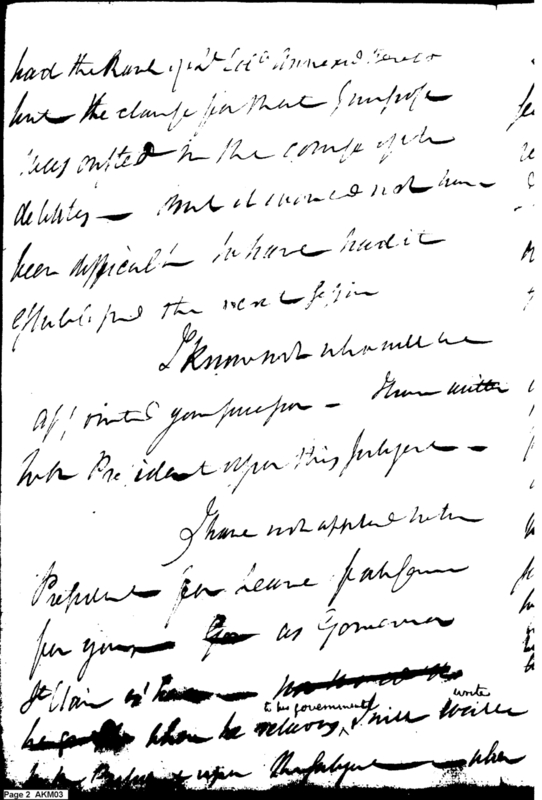 had the Rank of Lt Col annexed thereto
but the clause for that purpose
was omitted in the course of the
debates — But it would not have
been difficult to have had it
established the next session
I know not who will be
appointed your successor — I have written
to the President upon this subject —
I have not applied to the
President for leave of absence
for you as Governor
St Clair is
when he returns to his government, I will write
to the President upon the subject — when
Page 2 AKM03